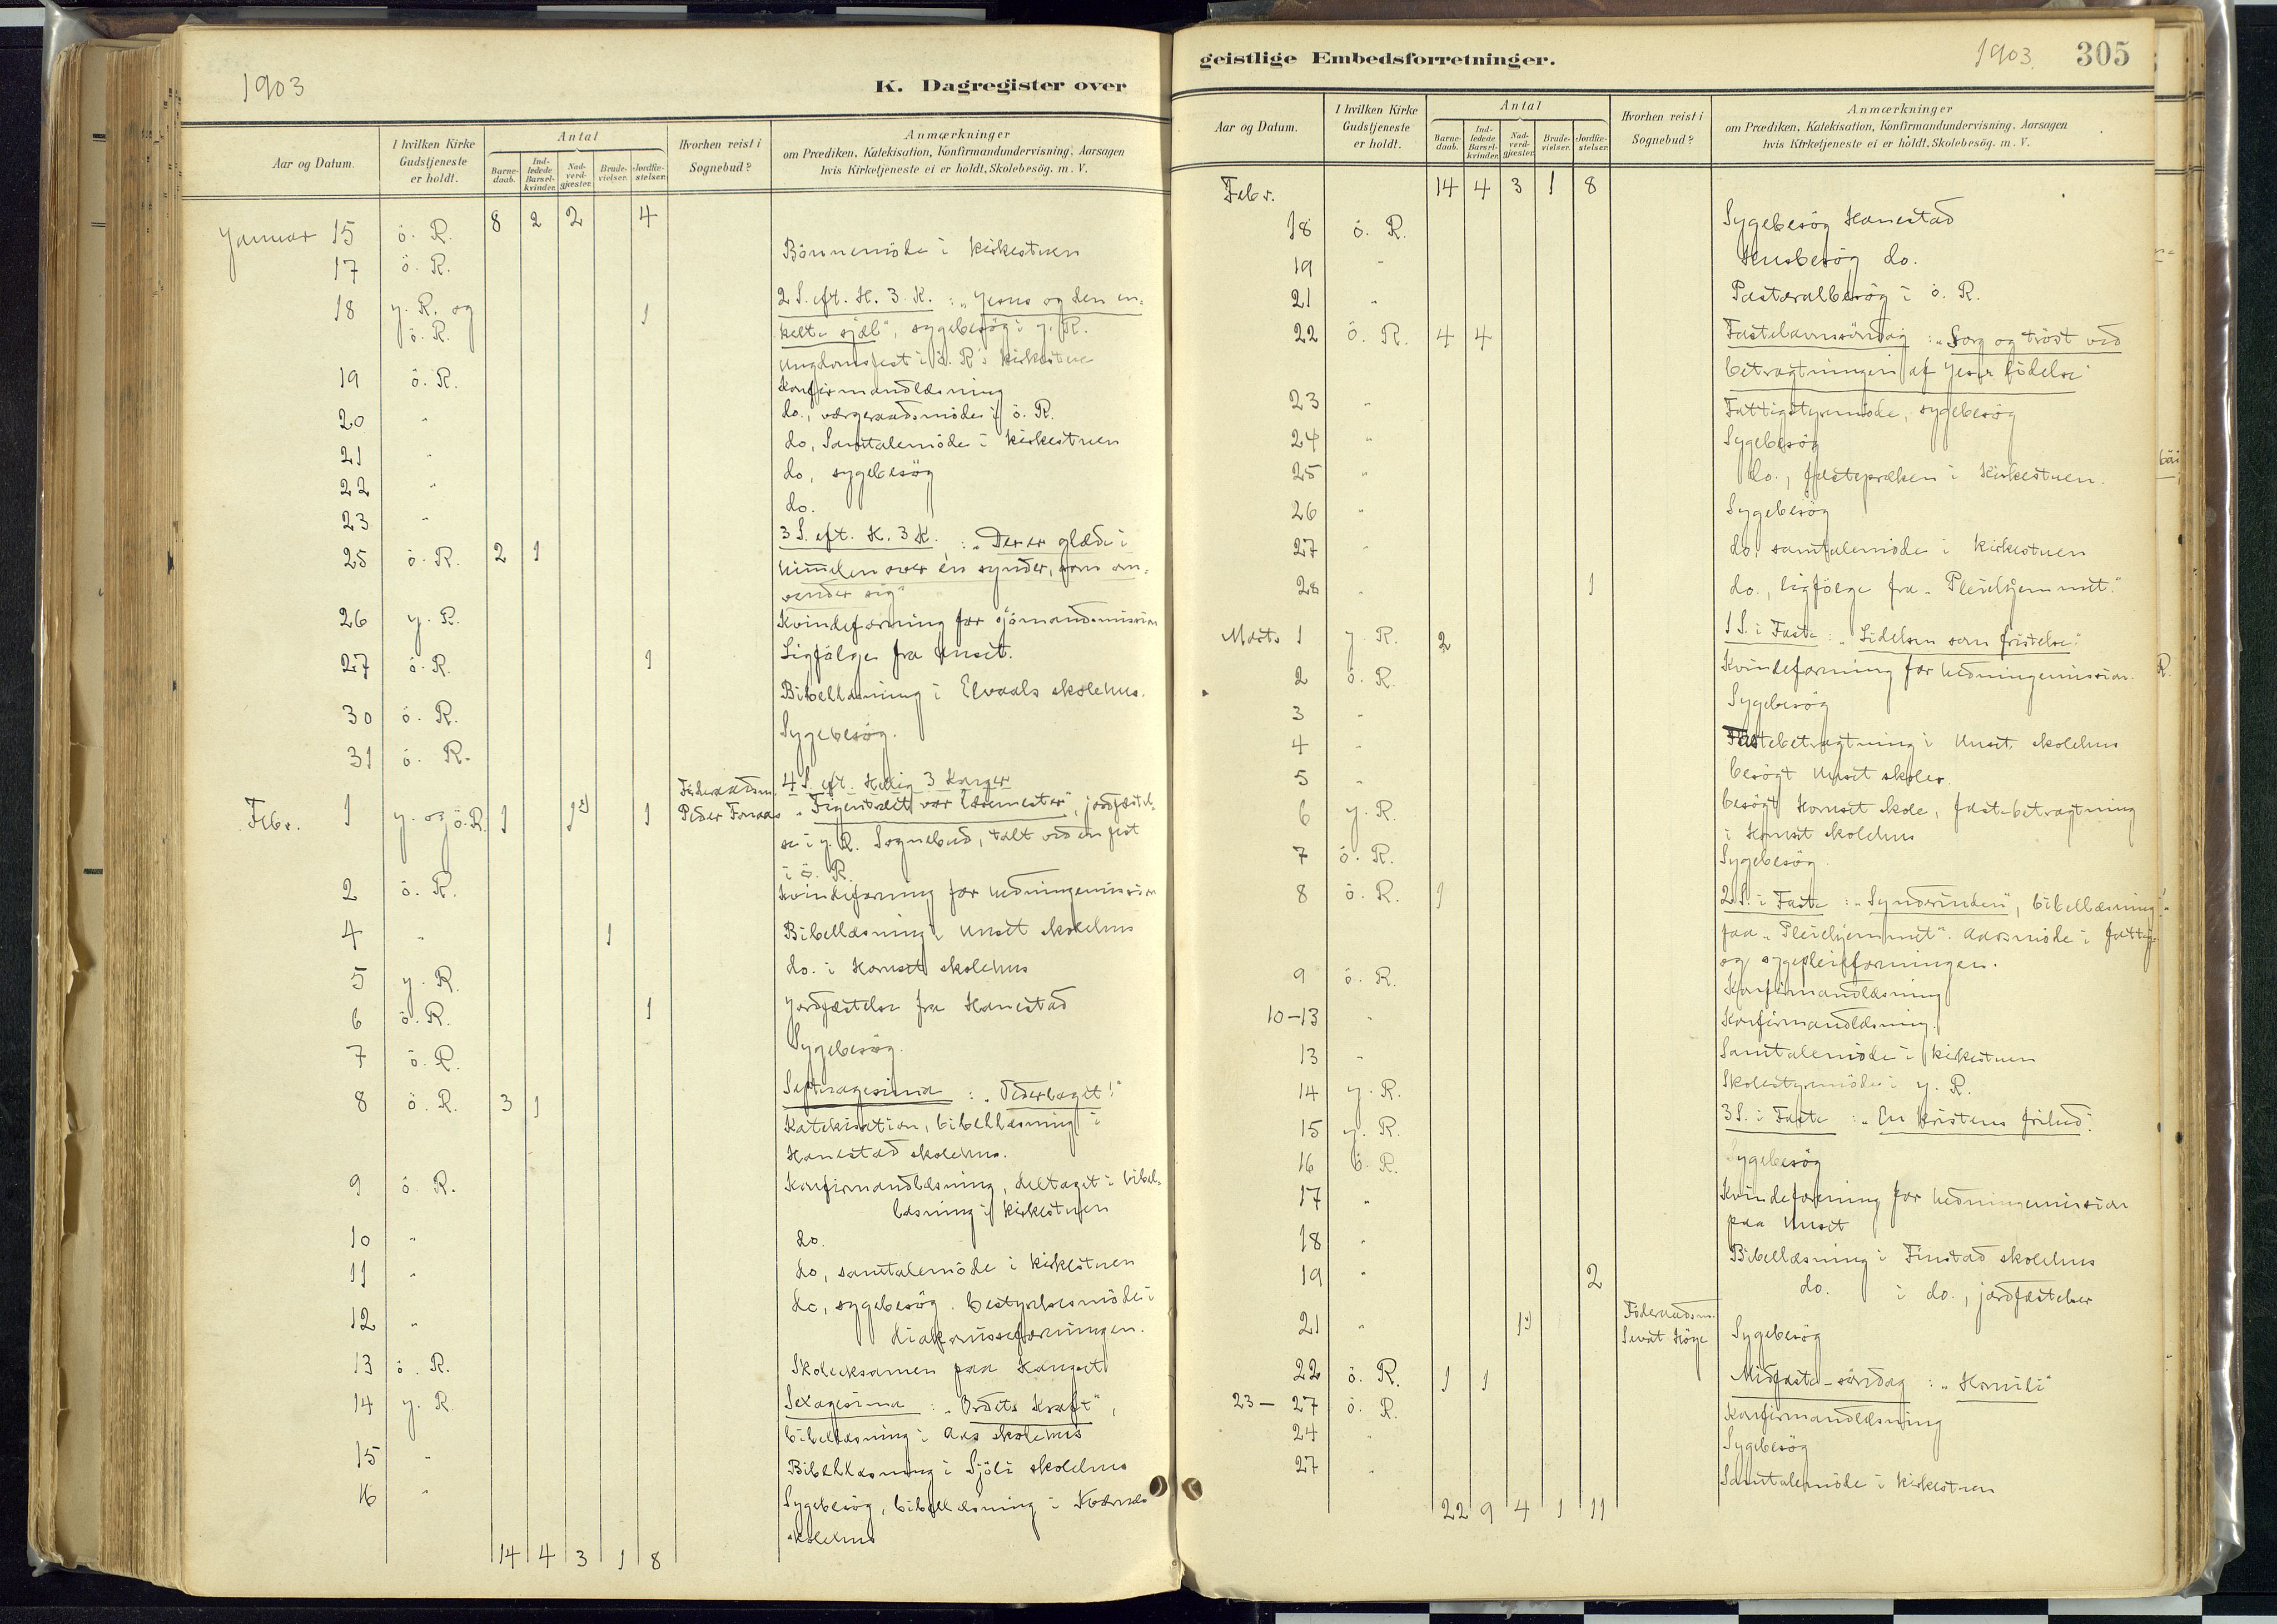 1903
K. Dagregister over
Aar og Datum.
I hvilken Kirke Gudstjeneste er holdt.
Antal
Barne-daab.
Ind-ledede Barsel-kvinder.
Nad-verd-gjæster.
Brude-vielser.
Jordfæ-stelser.
Hvorhen reist i Sognebud?
Anmærkninger
om Prædiken, Katekisation, Konfirmandundervisning, Aarsagen
hvis Kirketjeneste ei er holdt, Skolebesög. m. V.
8 2 2 4
Januar 15 ö. R. Bönnemöde i kirkestuen
17 ö. R.
18 y. R. og ö. R. 1 2 S. eft. H. 3 K. : „Jesus og den en-
kelte sjæl", sygebesög i y. R.
Ungdomsfest i ö. R's kirkestue
19 ö. R. Konfirmandlæsning
20 " do., værgeraadsmöde i ö. R.
21 " do, Samtalemöde i kirkestuen
22 " do, sygebesög
23 " do.
25 ö. R. 2 1 3 S. eft. H. 3 K. : „Der er glæde i
himmelen over en synder, som om-
vender sig"
26 y. R. Kvindeforening for sjömandsmission
27 ö. R. 1 Ligfölge fra Unset.
Bibellæsning i Elvaals skolehus.
30 ö. R. Sygebesög.
31 ö. R.
Febr. 1 y. og ö. R. 1 1 1 Föderaadsm. Peder Fonaas 4 S. eft. Hellig 3 Konger
„Figentræet vor læremester", jordfæstel-
se i y. R. Sognebud, talt ved en fest
i ö. R.
2 ö. R. Kvindeforening for hedningemission
4 " 1 Bibellæsning i Unset skolehus
5 y. R. do. i Hornset skolehus
6 ö. R. 1 Jordfæstelse fra Hanestad
7 ö. R. Sygebesög.
8 ö. R. 3 1 Septuagesima : „Vederlaget!"
Katekisation, bibellæsning i
Hanestad skolehus.
9 ö. R. Konfirmandlæsning, deltaget i bibel-
læsning i kirkestuen
10 " do.
11 " do, samtalemöde i kirkestuen
12 " do, sygebesög. bestyrelsesmöde i
diakonisseforeningen.
13 ö. R. Skoleeksamen paa
14 y. R. Sexagesima : „Ordets Kraft",
bibellæsning i Aas skolehus
15 " Bibellæsning i Sjöli skolehus
16 " Sygebesög, bibellæsning i
skolehus
14 4 3 1 8
geistlige Embedsforretninger.
1903. 305
Aar og Datum.
I hvilken Kirke Gudstjeneste er holdt.
Antal
Barne-daab.
Ind-ledede Barsel-kvinder.
Nad-verd-gjæster.
Brude-vielser.
Jordfæ-stelser.
Hvorhen reist i Sognebud?
Anmærkninger
om Prædiken, Katekisation, Konfirmandundervisning, Aarsagen
hvis Kirketjeneste ei er holdt, Skolebesög. m. V.
Febr. 14 4 3 1 8
18 ö. R. Sygebesög Hanestad
19 " Husbesög do.
21 " Pastoralbesög i ö. R.
22 ö. R. 4 4 Fastelavnssöndag : „Sorg og tröst ved
betragtningen af Jesu lidelse"
23 " Fattigstyremöde, sygebesög
24 " Sygebesög
25 " do., fastepræken i Kirkestuen.
26 " Sygebesög
27 " do, samtalemöde i kirkestuen
28 " 1 do., ligfölge fra „Pleiehjemmet."
Marts 1 y. R. 2 1 S. i Faste : „Lidelsen som fristelse."
2 ö. R. Kvindeforening for hedningemission.
3 " Sygebesög
4 " Fastebetragtning i Unset skolehus
5 " besögt Unset skoler.
6 y. R. besögt Hornset skole, fastebetragtning
i Hornset skolehus
7 ö. R. Sygebesög.
8 ö. R. 1 2 S. i Faste : „Synderinden", bibellæsning
paa „Pleiehjemmet". Aarsmöde i fattig-
og sygepleieforeningen.
9 ö. R. Konfirmandlæsning
10-13 " Konfirmandlæsning.
13 " Samtalemöde i kirkestuen
14 y. R. Skolestyremöde i y. R.
15 y. R. 3 S. i Faste : „En kristens frihed".
16 ö. R. Sygebesög
17 " Kvindeforening for hedningemission
paa Unset
18 " Bibellæsning i Finstad skolehus
19 " 2 do. i do., jordfæstelser
21 " 1 Föderaadsm. Sivat Höye Sygebesög
22 ö. R. 1 1 Midfaste-söndag : „Homili"
23-27 ö. R. Konfirmandlæsning
24 " Sygebesög
27 " Samtalemöde i kirkestuen
22 9 4 1 11